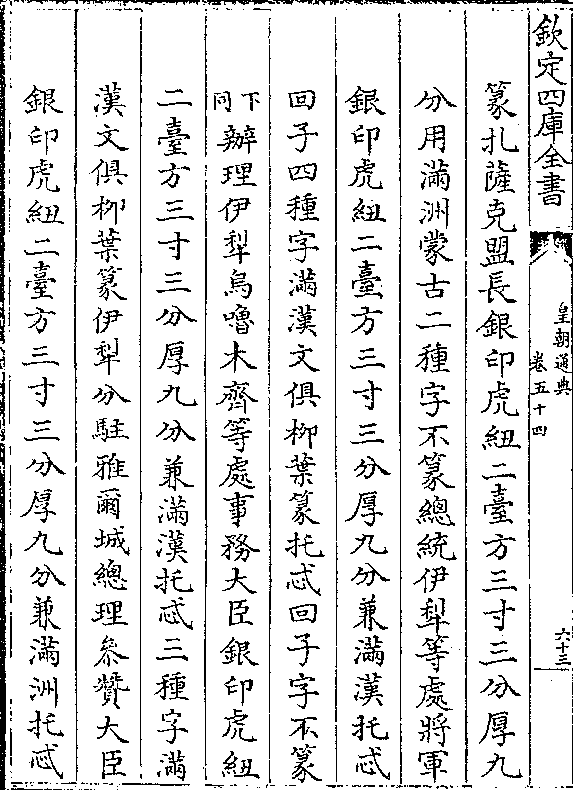 欽定四庫全書
皇朝通典
卷五十四
六十三
篆扎薩克盟長銀印虎紐二臺方三寸三分厚九
分用滿洲蒙古二種字不篆總統伊犁等處將軍
銀印虎紐二臺方三寸三分厚九分兼滿漢托忒
回子四種字滿漢文俱柳葉篆托忒回子字不篆
下同辦理伊犁烏嚕木齊等處事務大臣銀印虎紐
二臺方三寸三分厚九分兼滿漢托忒三種字滿
漢文俱柳葉篆伊犁分駐雅爾城總理叅贊大臣
銀印虎紐二臺方三寸三分厚九分兼滿洲托忒